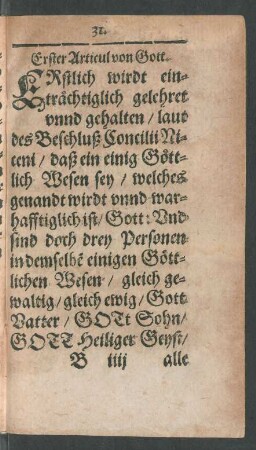 31.
Erster Articul von Gott.
ERstlich wirdt ein-
trächtiglich gelehret
vnnd gehalten / laut
des Beschluß Concilii Ni-
ceni / daß ein einig Gött-
lich Wesen sey / welches
genandt wirdt vnnd war-
hafftiglich ist / Gott: Vnd
sind doch drey Personen
in demselbē einigen Gött-
lichen Wesen / gleich ge-
waltig / gleich ewig / Gott
Vatter / GOTt Sohn /
GOTT Heiliger Geyst /
B iiij alle